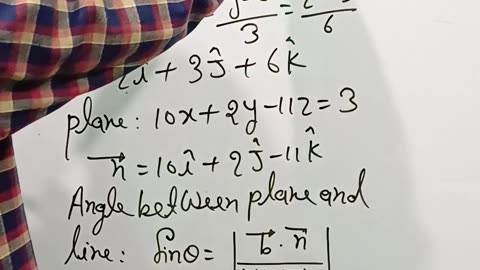 3 = 6
2î + 3ĵ + 6k̂
plane: 10x+2y-11z=3
n⃗ = 10î + 2ĵ - 11k̂
Angle between plane and
line: Sinθ= | b⃗ . n⃗ |